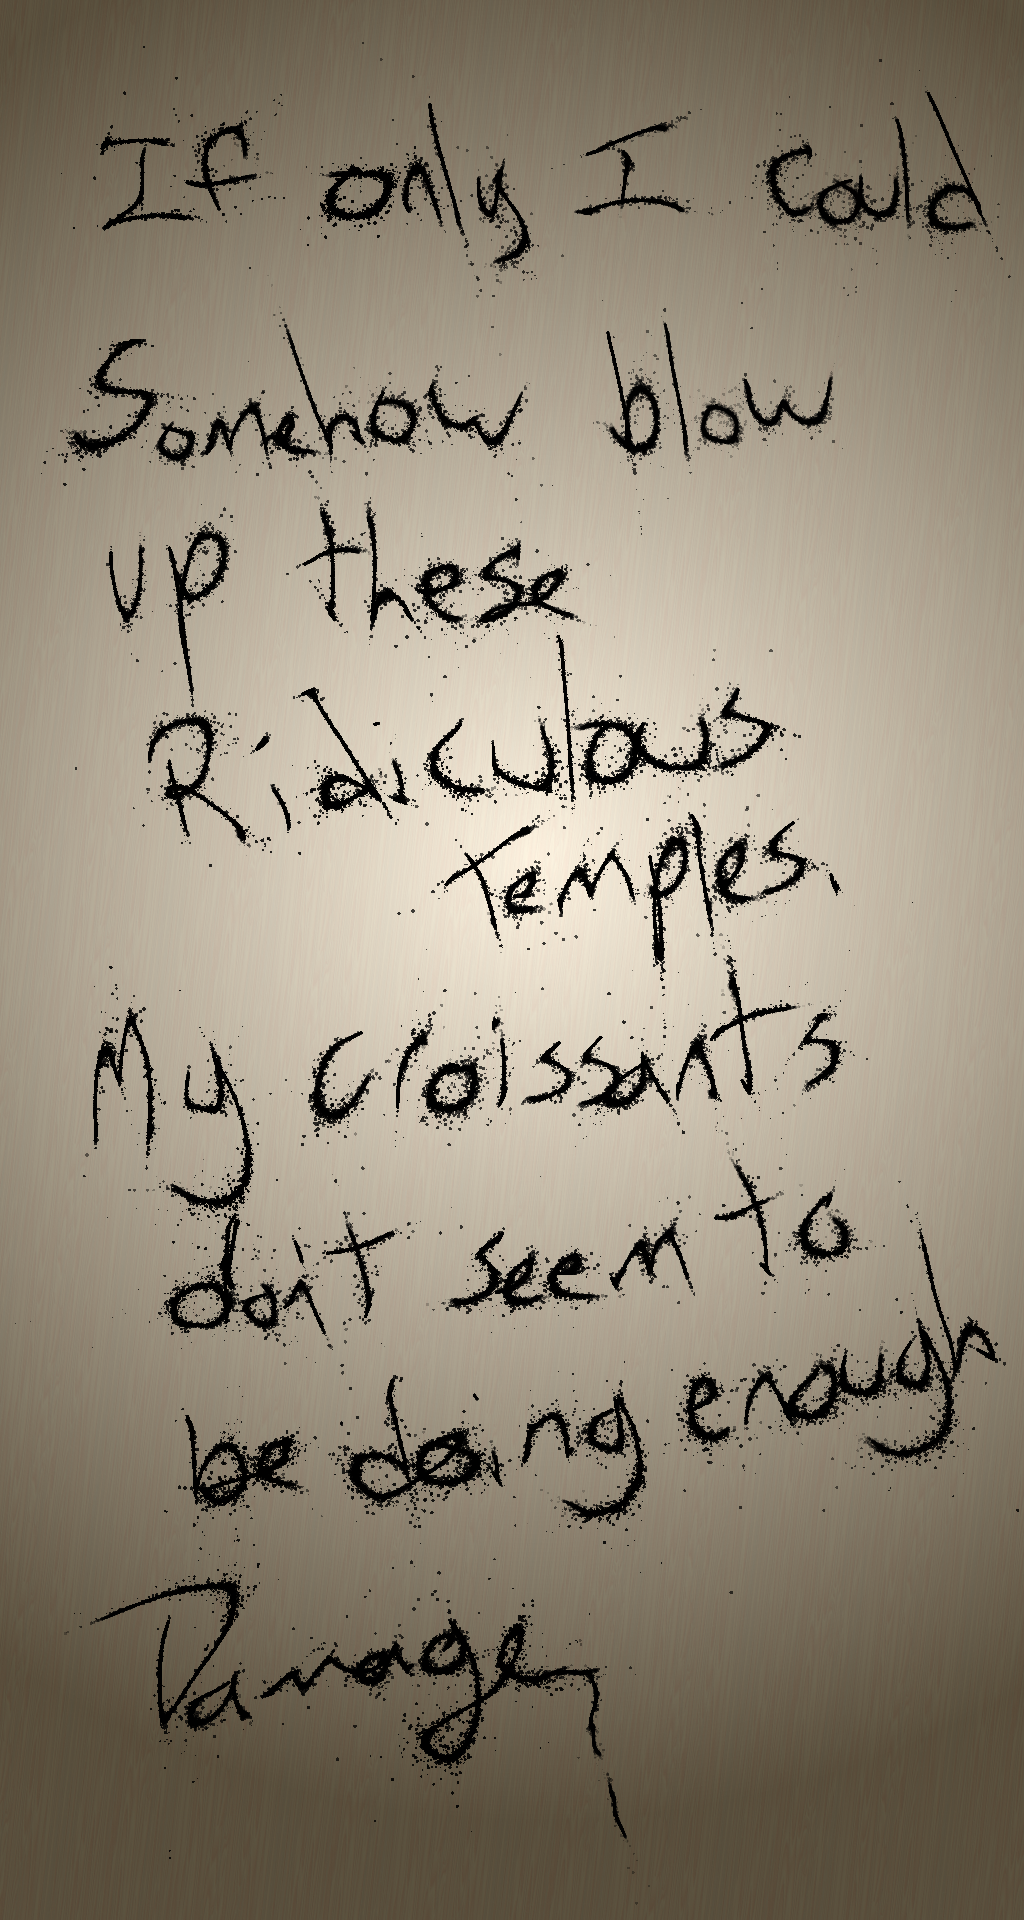 If only I could
Somehow blow
up these
Ridiculous
Temples,
My Croissants
don't seem to
be doing enough
Damage